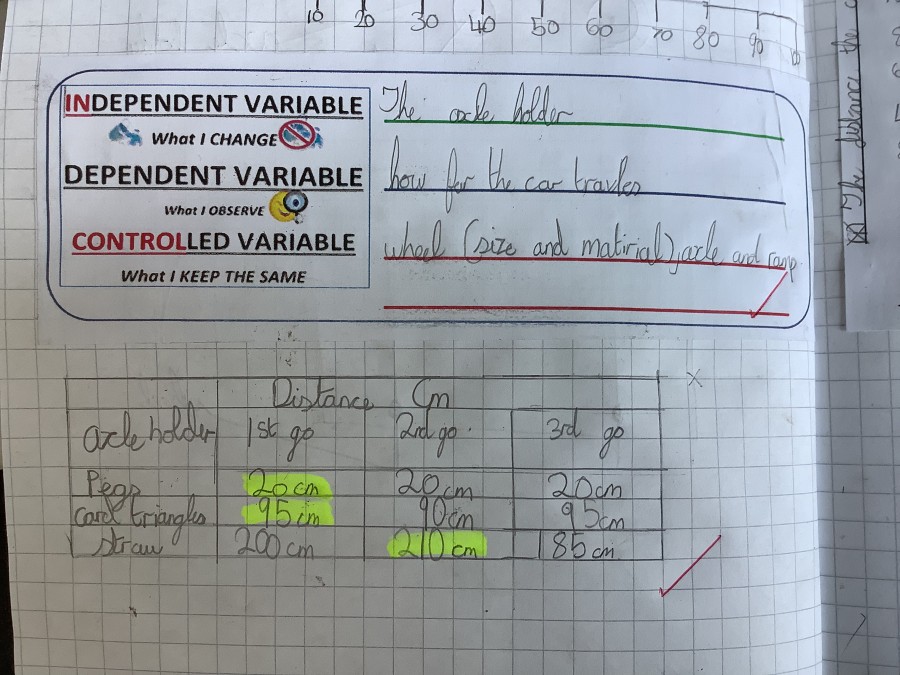 10 20 30 40 50 60 70 80 90
INDEPENDENT VARIABLE
What I CHANGE
The axle holder
DEPENDENT VARIABLE
What I OBSERVE
how far the car travles
CONTROLLED VARIABLE
What I KEEP THE SAME
wheel (size and matirial), axle and ramp
Distance Cm
axcle holder 1st go 2nd go. 3rd go
Pegs 20 cm 20 cm 20 cm
card triangles 95 cm 90 cm 95 cm
straw 200 cm 210 cm 185 cm
The distance the